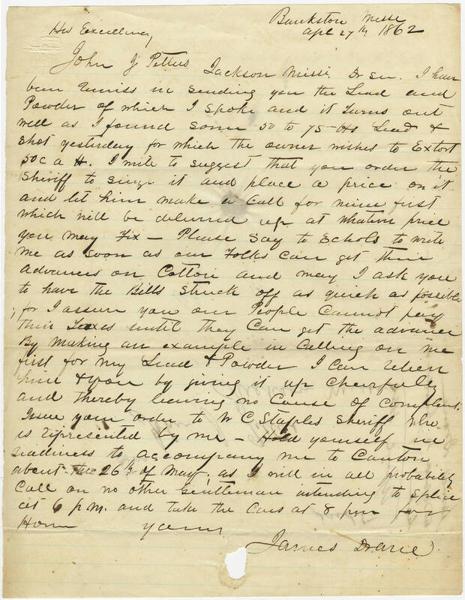 Bankston Missi
Apl 27th 1862
His Excellency
John J Pettus Jackson Missi Dr Sir. I have
been remiss in sending you the Lead and
Powder of which I spoke and it turns out
well as I found some 50 to 75 lbs Lead &
Shot yesterday for which the owner wishes to Extort
50c a lb. I write to suggest that you order the
Sheriff to seize it and place a price on it
and let him make a Call for mine first
which will be delivered up at whatever price
you may Fix — Please Say to Echols to write
me as soon as our Folks Can get their
Advances on Cotton and may I ask you
to have the Bills Struck off as quick as possible
for I assure you our People Cannot pay
their Taxes until they Can get the advance
By Making an example in Calling on me
first for my Lead & Powder I Can
him & you by giving it up Cheerfully
and thereby leaving no Cause of Complaint.
Issue your order to W C Staples Sheriff who
is represented by me. Hold yourself in
readiness to accompany me to Canton
about the 26th of May, as I will in all probability
Call on no other gentleman intending to Splice
at 6 P.M. and take the Cars at 8 pm for
Home yours
James Drane